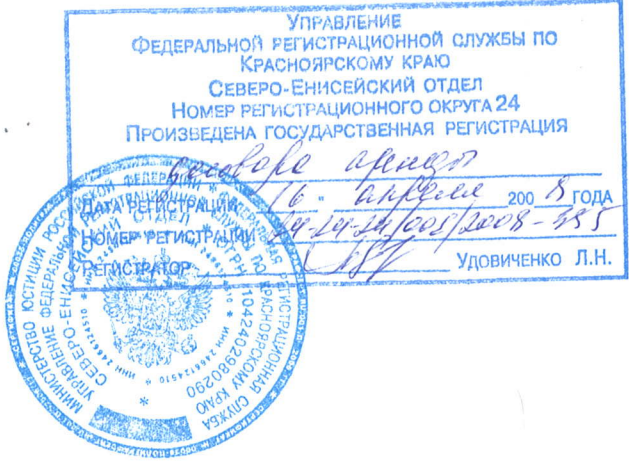 УПРАВЛЕНИЕ
ФЕДЕРАЛЬНОЙ РЕГИСТРАЦИОННОЙ СЛУЖБЫ ПО
КРАСНОЯРСКОМУ КРАЮ
СЕВЕРО-ЕНИСЕЙСКИЙ ОТДЕЛ
НОМЕР РЕГИСТРАЦИОННОГО ОКРУГА 24
ПРОИЗВЕДЕНА ГОСУДАРСТВЕННАЯ РЕГИСТРАЦИЯ
договора аренды
ДАТА РЕГИСТРАЦИИ 16 " апреля 200 8 ГОДА
НОМЕР РЕГИСТРАЦИИ
РЕГИСТРАТОР УДОВИЧЕНКО Л.Н.
МИНИСТЕРСТВО ЮСТИЦИИ РОССИЙСКОЙ ФЕДЕРАЦИИ * ФЕДЕРАЛЬНАЯ РЕГИСТРАЦИОННАЯ СЛУЖБА
УПРАВЛЕНИЕ ФЕДЕРАЛЬНОЙ РЕГИСТРАЦИОННОЙ СЛУЖБЫ ПО КРАСНОЯРСКОМУ КРАЮ
СЕВЕРО-ЕНИСЕЙСКИЙ ОТДЕЛ * ОГРН 1042402980290
* ИНН 2466124510 * ИНН 2466124510